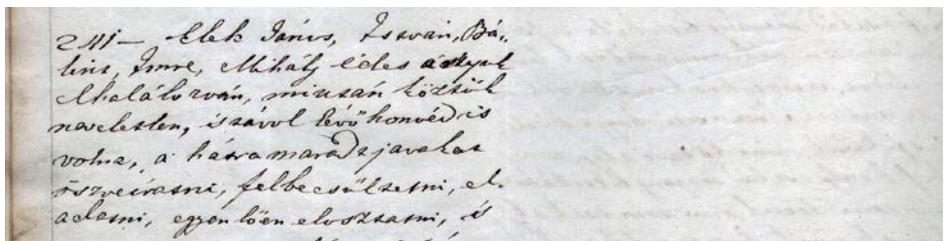 2111 — Elek János, István, Bá„
lint, Imre, Mihály édes anyjuk
Elhalálozván, miután köztük
neveletlen, is távol lévő honvéd is
volna, a hátra maradt javakat
öszveiratni, felbecsültetni, el„
adatni, egyenlően elosztatni, is